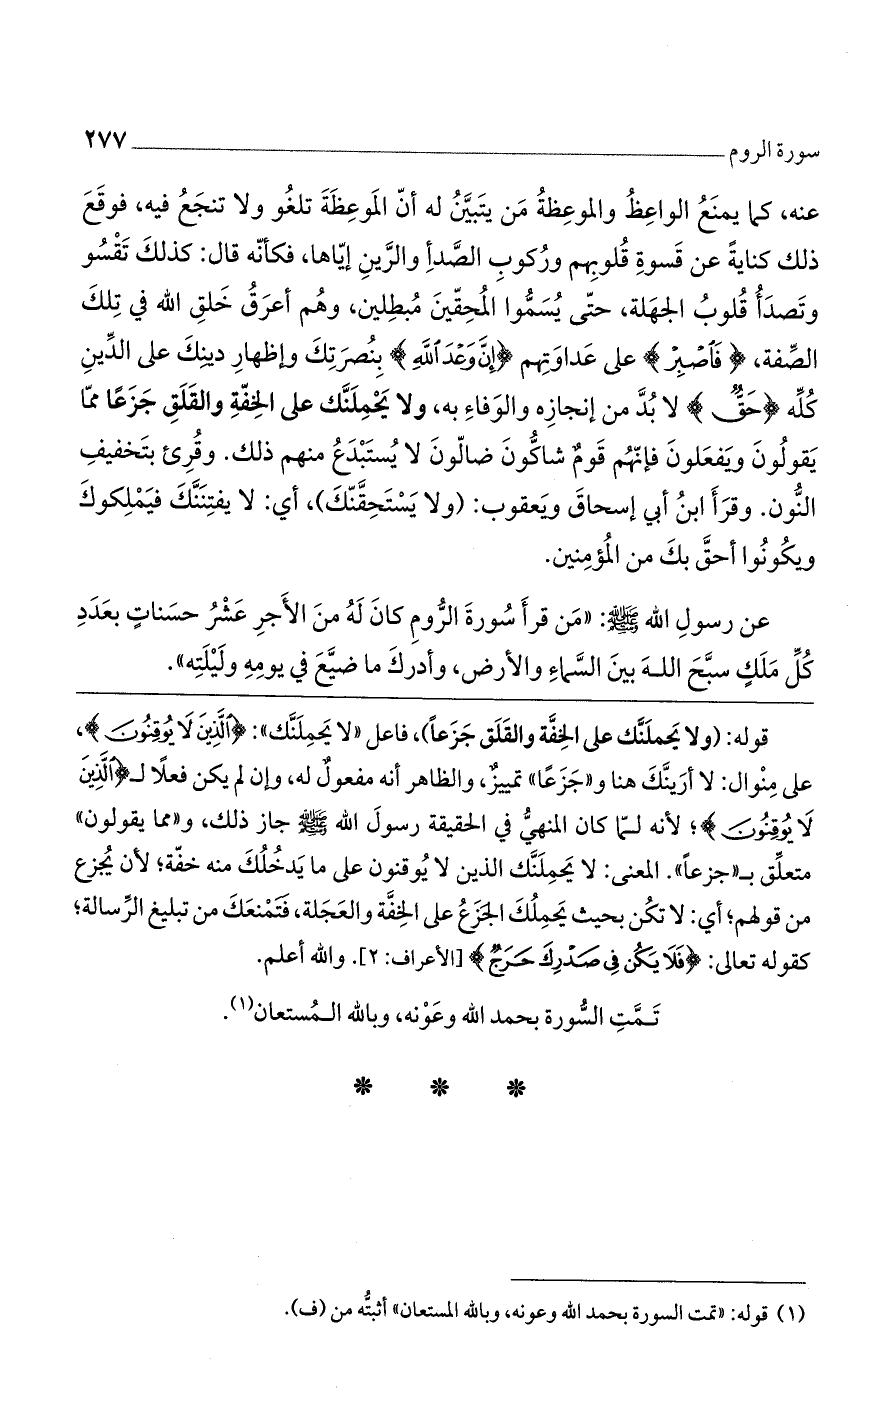 سورة الروم ٢٧٧
عنه، كما يمنَعُ الواعِظُ والموعِظةُ مَن يتَبيَّنُ له أنّ المَوعِظَةَ تلغُو ولا تنجَعُ فيه، فوقَعَ
ذلك كنايةً عن قَسوةِ قُلوبِهم ورُكوبِ الصَّدأِ والرَّينِ إيّاها، فكأنّه قال: كذلكَ تَقْسُو
وتَصدَأُ قُلوبُ الجهَلة، حتّى يُسَمُّوا المُحِقّينَ مُبطِلين، وهُم أعرَقُ خَلقِ الله في تِلكَ
الصِّفة، ﴿فَٱصْبِرْ﴾ على عَداوَتِهم ﴿إِنَّ وَعْدَ ٱللَّهِ﴾ بِنُصرَتِكَ وإظهارِ دينِكَ على الدِّينِ
كُلِّه ﴿حَقٌّ﴾ لا بُدَّ من إنجازِه والوَفاءِ به، ولا يَحْمِلَنَّك على الخِفّةِ والقَلَقِ جَزَعًا ممّا
يَقولُونَ ويَفعَلونَ فإنّهُم قَومٌ شاكُّونَ ضالّونَ لا يُستَبْدَعُ منهم ذلك. وقُرِئ بتَخفيفِ
النُّون. وقرَأَ ابنُ أبي إسحاقَ ويَعقوب: (ولا يَسْتَحِقَّنّكَ)، أي: لا يفتِنَنَّكَ فيَمْلِكوكَ
ويكُونُوا أحقَّ بكَ من المُؤمِنين.
عن رسولِ الله ﷺ: «مَن قرأَ سُورةَ الرُّومِ كانَ لَهُ منَ الأَجرِ عَشْرُ حسَناتٍ بعَدَدِ
كُلِّ مَلَكٍ سبَّحَ اللـهَ بينَ السَّماءِ والأرض، وأدركَ ما ضيَّعَ في يومِهِ ولَيْلَتِه».
قوله: (ولا يَحملَنَّك على الخِفَّة والقَلَق جَزَعاً)، فاعل «لا يَحمِلَنَّك»: ﴿ٱلَّذِينَ لَا يُوقِنُونَ﴾،
على مِنْوال: لا أرَينَّكَ هنا و«جَزَعًا» تمييزٌ، والظاهر أنه مفعولٌ له، وإن لم يكن فعلًا لـ﴿ٱلَّذِينَ
لَا يُوقِنُونَ﴾؛ لأنه لـمّا كان المنهيُّ في الحقيقة رسولَ الله ﷺ جاز ذلك، و«مما يقولون»
متعلِّق بـ«جزعاً». المعنى: لا يَحمِلَنَّك الذين لا يُوقنون على ما يَدخُلُكَ منه خفّة؛ لأن يُجزع
من قولهم؛ أي: لا تكُن بحيث يَحمِلُكَ الجَزَعُ على الخِفَّة والعَجَلة، فتَمْنعَكَ من تبليغ الرِّسالة؛
كقوله تعالى: ﴿فَلَا يَكُن فِى صَدْرِكَ حَرَجٌ﴾ [الأعراف: ٢]. والله أعلم.
تَـمَّتِ السُّورة بحمد الله وعَوْنه، وبالله الـمُستعان(١).
* * *
(١) قوله: «تمت السورة بحمد الله وعونه، وبالله المستعان» أثبتُّه من (ف).